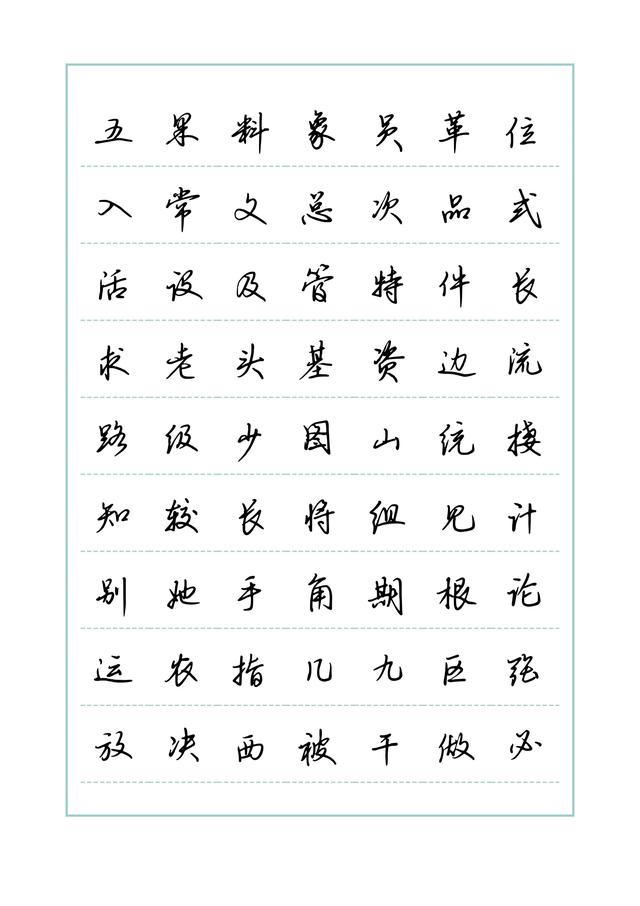 五 果 料 象 员 革 位
入 常 文 总 次 品 式
活 设 及 管 特 件 长
求 老 头 基 资 边 流
路 级 少 图 山 统 接
知 较 长 将 组 见 计
别 她 手 角 期 根 论
运 农 指 几 九 区 强
放 决 西 被 干 做 必